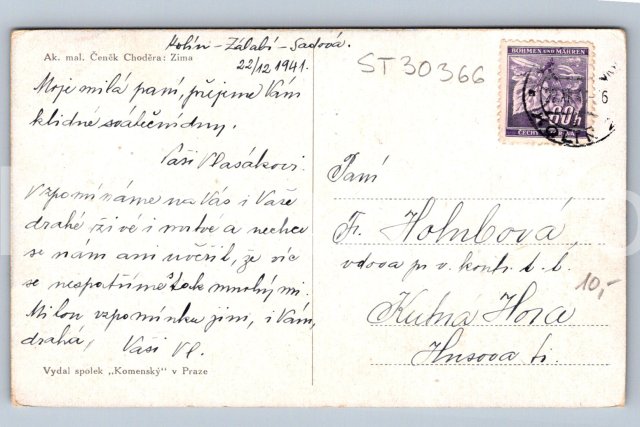 Kolín - Zálabí - Sadová.
Ak. mal. Čeněk Choděra: Zima
22/12 1941.
ST 30366
Moje milá paní, přejeme Vám
klidné sváteční dny.
Vaši Vlasákovi.
Vzpomínáme na Vás i Vaše
drahé živé i mrtvé a nechce
se nám ani věřit, že víc
se nespatříme s tak mnohými.
Milou vzpomínku jim, i Vám,
drahá, Vaši Vl.
Vydal spolek „Komenský" v Praze
BÖHMEN UND MÄHREN
60 h
6
Paní
Fr. Holubová,
vdova po v. kontr. t. l.
10,-
Kutná Hora
Husova tř.